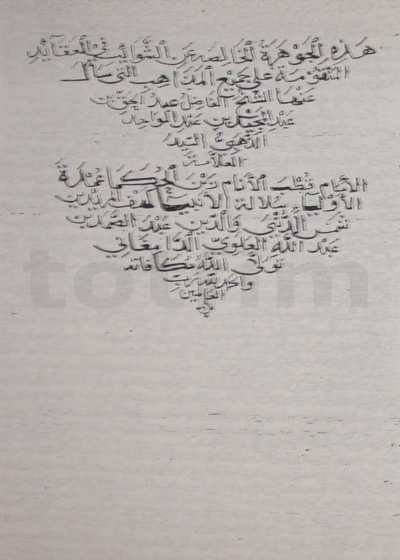 هذه الجوهرة الخالصة عن الشوائب في العقائد
المنقومة على جميع المذاهب التي سأل
عنها الشيخ الفاضل عبد الحق بن
عبد المجيد بن عبد الواحد
الذهبي السيد
العلامة
الإمام قطب الأنام زين الحكما عمدة
الأولياء سلالة الأنبياء المريدين
شمس الدين والدين عبد الصمد بن
عبد الله العلوي الدامغاني
تولى الله مكافاته
والحمد لله رب
العالمين
totfim